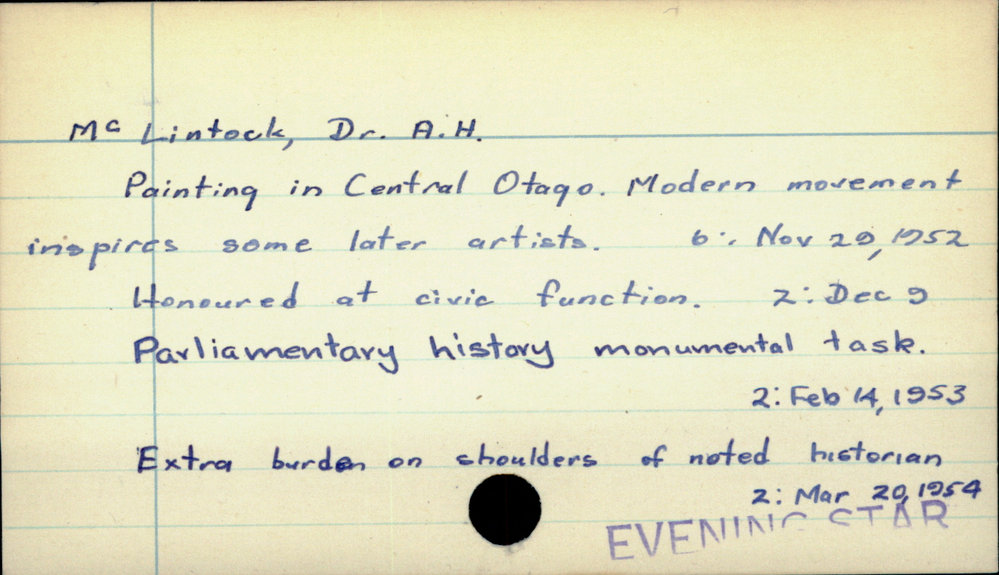 Mc Lintock, Dr. A.H.
Painting in Central Otago. Modern movement
inspires some later artists. 6: Nov 29, 1952
Honoured at civic function. 2: Dec 9
Parliamentary history monumental task.
2: Feb 14, 1953
Extra burden on shoulders of noted historian
2: Mar 20, 1954
EVENING STAR